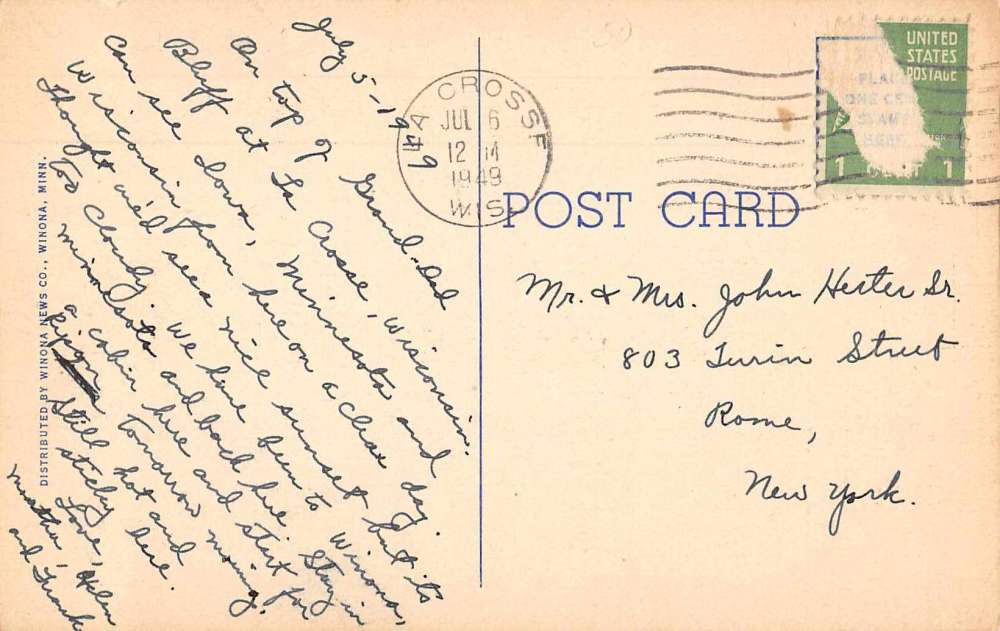 July 5-1949
On top of Grand-Dad
Bluff at La Crosse, Wisconsin.
Can see Iowa, Minnesota and
Wisconsin from here on a clear day.
Thought we'd see a nice sunset but its
Too cloudy. We have been to Winona,
Minnesota and back here. Stay in
a cabin here and start for
Ripon tomorrow morning.
Still hot and
sticky here.
Love,
Martha, Helen
and Frank
DISTRIBUTED BY WINONA NEWS CO., WINONA, MINN.
LA CROSSE
JUL 6
12 M
1949
WIS
UNITED
STATES
POSTAGE
PLACE
ONE CENT
STAMP
HERE
1 1
POST CARD
Mr. & Mrs. John Hester Sr.
803 Turin Street
Rome,
New York.